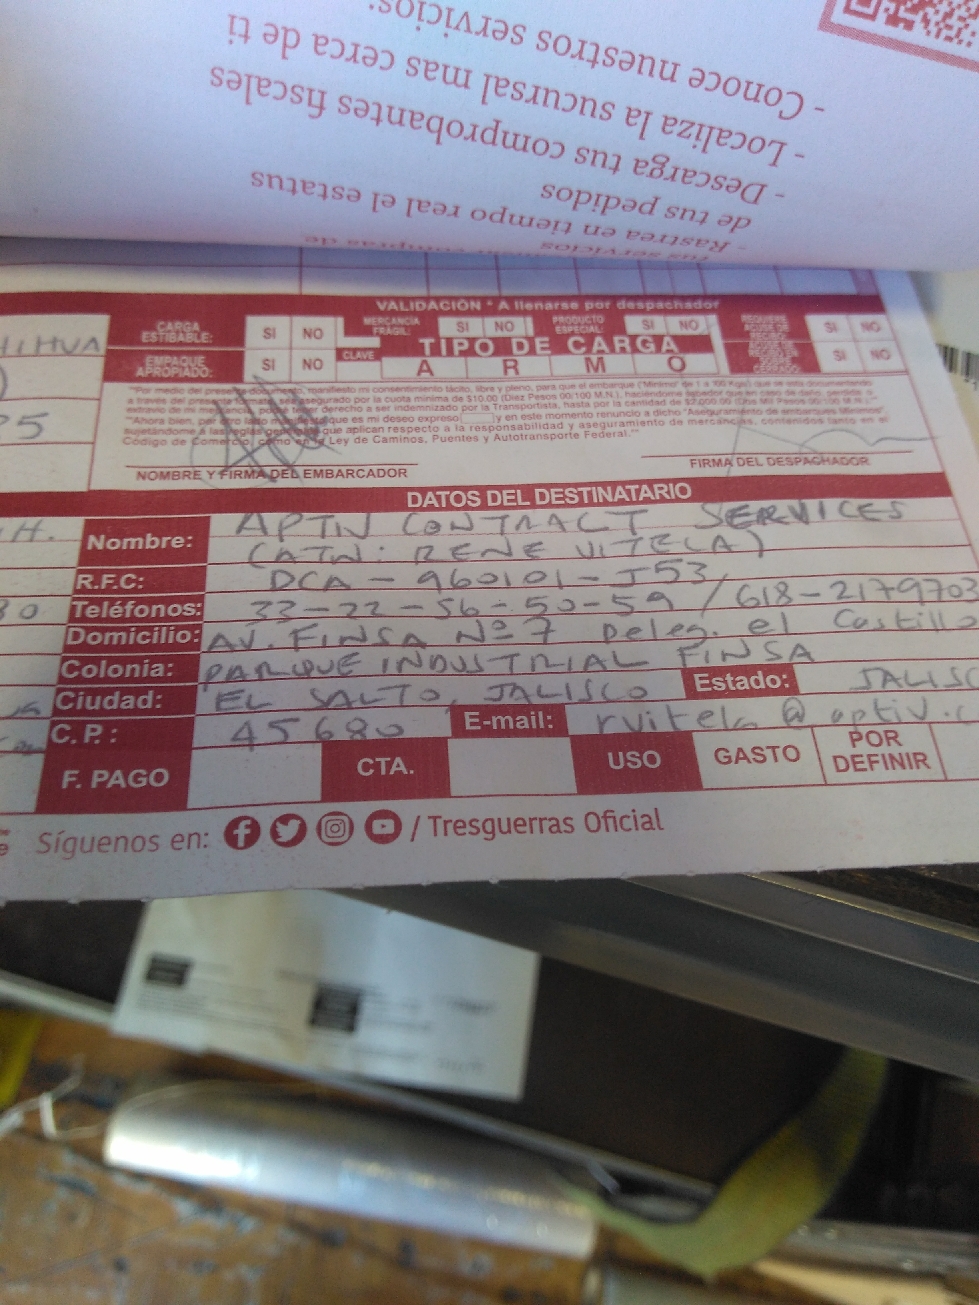 - Conoce nuestros servicios.
- Localiza la sucursal mas cerca de ti
- Descarga tus comprobantes fiscales
de tus pedidos
- Rastrea en tiempo real el estatus
VALIDACIÓN * A llenarse por despachador
CARGA ESTIBABLE: SI NO MERCANCIA FRAGIL: SI NO PRODUCTO ESPECIAL: SI NO REQUIERE ACUSE DE SI NO
HIHUA
EMPAQUE APROPIADO: SI NO CLAVE TIPO DE CARGA SI NO
A R M O
"Por medio del presente documento, manifiesto mi consentimiento tácito, libre y pleno, para que el embarque ("Mínimo" de 1 a 100 Kgs) que se está documentando
a través del asegurado por la cuota mínima de $10.00 (Diez Pesos 00/100 M.N.), haciéndome sabedor que en caso de daño, pérdida o
extravío de mi derecho a ser indemnizado por la Transportista, hasta por la cantidad de
"Ahora bien, por otro lado que es mi deseo expreso y en este momento renuncio a dicho "Aseguramiento de embarques Mínimos"
sujetándome a las reglas que aplican respecto a la responsabilidad y aseguramiento de mercancías, contenidos tanto en el
Código de Comercio, como en la Ley de Caminos, Puentes y Autotransporte Federal.""
NOMBRE Y FIRMA DEL EMBARCADOR FIRMA DEL DESPACHADOR
DATOS DEL DESTINATARIO
Nombre: APTIV CONTRACT SERVICES
(ATN: RENE VITELA)
R.F.C: DCA-960101-J53
Teléfonos: 33-22-56-50-59 / 618-2179703
Domicilio: AV. FINSA Nº 7 Deleg. el Castillo
Colonia: PARQUE INDUSTRIAL FINSA
Ciudad: EL SALTO, JALISCO Estado: JALISC
C.P.: 45680 E-mail: rvitela@aptiv.c
F. PAGO CTA. USO GASTO POR DEFINIR
Síguenos en: / Tresguerras Oficial